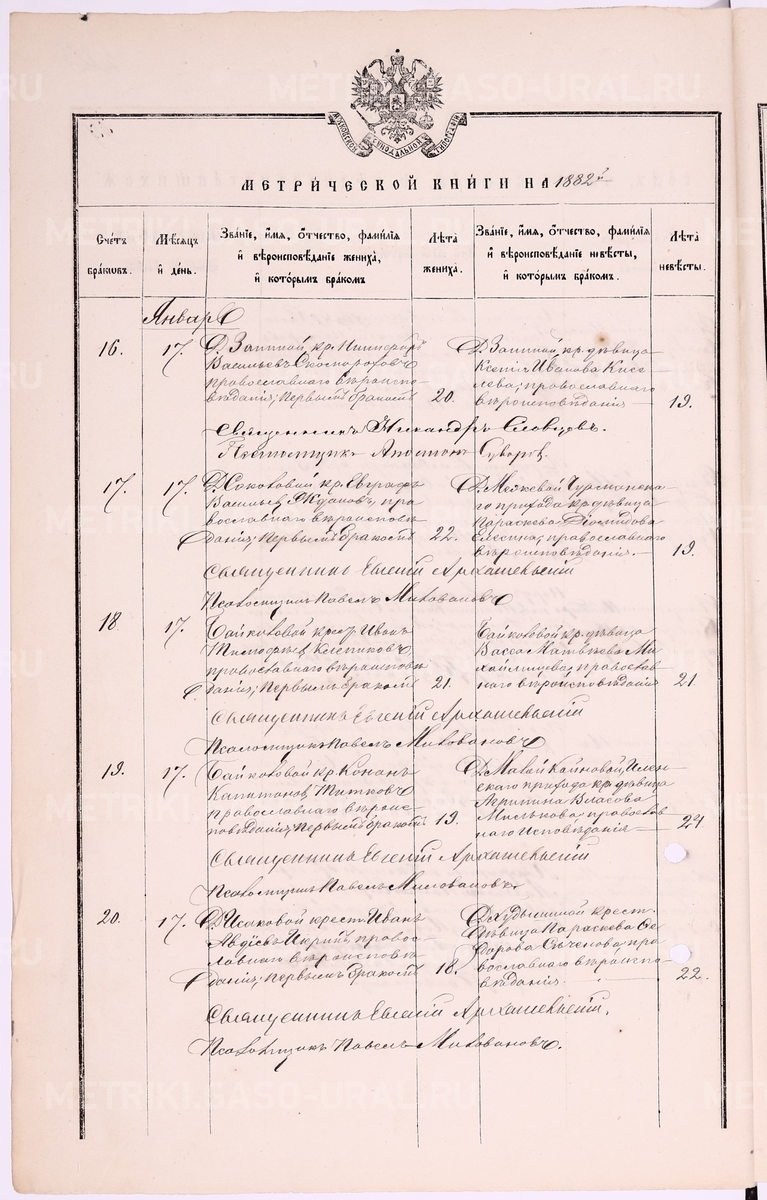 МЕТРИ́ЧЕСКОЙ КНИ́ГИ НА 1882 г.
Сче́тъ бра́ковъ.
Мѣ́сяцъ и҆ де́нь.
Зва́ніе, и҆́мя, ѻ҆́тчество, фами́лія и҆ вѣроисповѣ́даніе жениха̀, и҆ кото́рымъ бра́комъ
Лѣ́та жениха̀.
Зва́ніе, и҆́мя, ѻ҆́тчество, фами́лія и҆ вѣроисповѣ́даніе невѣ́сты, и҆ кото́рымъ бра́комъ.
Лѣ́та невѣ́сты.
Январь
16. 17.
Д. Заипной кр.
Васильевъ Скоморохов
православнаго вѣроиспо-
вѣданія; первымъ бракомъ 20.
Д. Заипной кр. дѣвица
Ксенія Иванова Кисе-
лева; православнаго
вѣроисповѣданія 19.
Священникъ Никандръ Словцовъ.
17. 17.
кр. Евграфъ
Васильев Жданов, пра-
вославнаго вѣроисповѣ-
данія; первымъ бракомъ 22.
прихода кр. дѣвица
Параскева Діомидова
православнаго
вѣроисповѣданія. 19.
Священникъ Евгеній
Псаломщикъ Павелъ Миловановъ
18. 17.
Байкаловой крест. Иванъ
Тимофѣев Клепиков
православнаго вѣроисповѣ-
данія; первымъ бракомъ 21.
Байкаловой кр. дѣвица
Васса Матвѣева Ми-
хайлищева; православ-
наго вѣроисповѣданія 21.
Священникъ Евгеній
Псаломщикъ Павелъ Миловановъ
19. 17.
Байкаловой кр. Конанъ
Капитонов Титков
православнаго вѣроис-
повѣданія, первымъ бракомъ 19.
прихода кр. дѣвица
Власова
православ-
наго исповѣданія 21
Священникъ Евгеній
Псаломщикъ Павелъ Миловановъ.
20. 17.
Д. Исаковой крест. Иванъ
Авдіевъ правос-
лавнаго вѣроисповѣ-
данія; первымъ бракомъ 18.
крест.
дѣвица Параскева Ѳе-
дорова пра-
вославнаго вѣроиспо-
вѣданія. 22.
Священникъ Евгеній
Псаломщикъ Павелъ Миловановъ.
METRIKI.GASO-URAL.RU